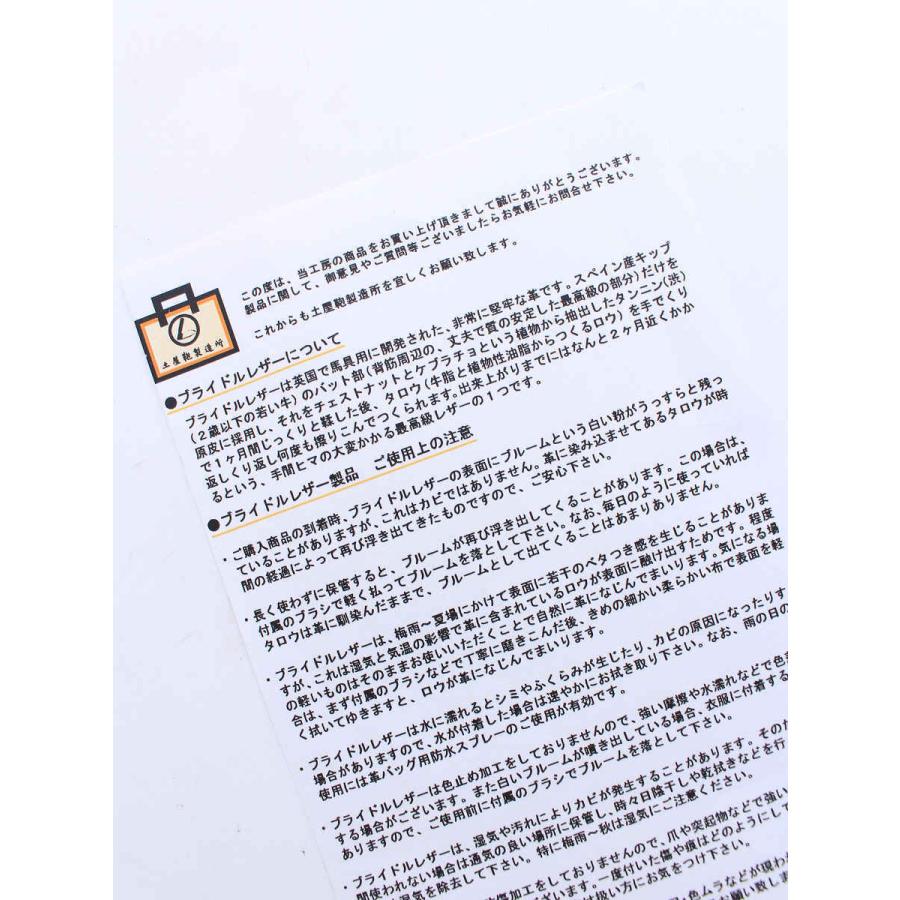 この度は、当工房の商品をお買い上げ頂きまして誠にありがとうございます。
製品に関して、御意見やご質問等ございましたらお気軽にお問合せ下さい。
これからも土屋鞄製造所を宜しくお願い致します。
土屋鞄製造所
●ブライドルレザーについて
ブライドルレザーは英国で馬具用に開発された、非常に堅牢な革です。スペイン産キップ
(2歳以下の若い牛)のバット部(背筋周辺の、丈夫で質の安定した最高級の部分)だけを
原皮に採用し、それをチェストナットとケブラチョという植物から抽出したタンニン(渋)
で1ヶ月間じっくりと鞣した後、タロウ(牛脂と植物性油脂からつくるロウ)を手でくり
返しくり返し何度も擦りこんでつくられます。出来上がりまでにはなんと2ヶ月近くかか
るという、手間ヒマの大変かかる最高級レザーの1つです。
●ブライドルレザー製品 ご使用上の注意
・ご購入商品の到着時、ブライドルレザーの表面にブルームという白い粉がうっすらと残っ
ていることがありますが、これはカビではありません。革に染み込ませてあるタロウが時
間の経過によって再び浮き出てきたものですので、ご安心下さい。
・長く使わずに保管すると、ブルームが再び浮き出してくることがあります。この場合は、
付属のブラシで軽く払ってブルームを落として下さい。なお、毎日のように使っていれば
タロウは革に馴染んだままで、ブルームとして出てくることはあまりありません。
・ブライドルレザーは、梅雨～夏場にかけて表面に若干のベタつき感を生じることがありま
すが、これは湿気と気温の影響で革に含まれているロウが表面に融け出すためです。程度
の軽いものはそのままお使いいただくことで自然に革になじんでまいります。気になる場
合は、まず付属のブラシなどで丁寧に磨きこんだ後、きめの細かい柔らかい布で表面を軽
く拭いてゆきますと、ロウが革になじんでまいります。
・ブライドルレザーは水に濡れるとシミやふくらみが生じたり、カビの原因になったりす
場合がありますので、水が付着した場合は速やかにお拭き取り下さい。なお、雨の日の
使用には革バッグ用防水スプレーのご使用が有効です。
・ブライドルレザーは色止め加工をしておりませんので、強い摩擦や水濡れなどで色
する場合がございます。また白いブルームが噴き出している場合、衣服に付着する
ありますので、ご使用前に付属のブラシでブルームを落として下さい。
・ブライドルレザーは、湿気や汚れによりカビが発生することがあります。そのた
間使われない場合は通気の良い場所に保管し、時々日陰干しや乾拭きなどを行
湿気を除去して下さい。特に梅雨～秋は湿気にご注意ください。
・ブライドルレザーは 加工をしておりませんので、爪や突起物などで強い
ございます。一度付いた傷や痕はどのようにして
は扱い方にお気をつけ下さい。
・色ムラなどが現わ
お願い致しま